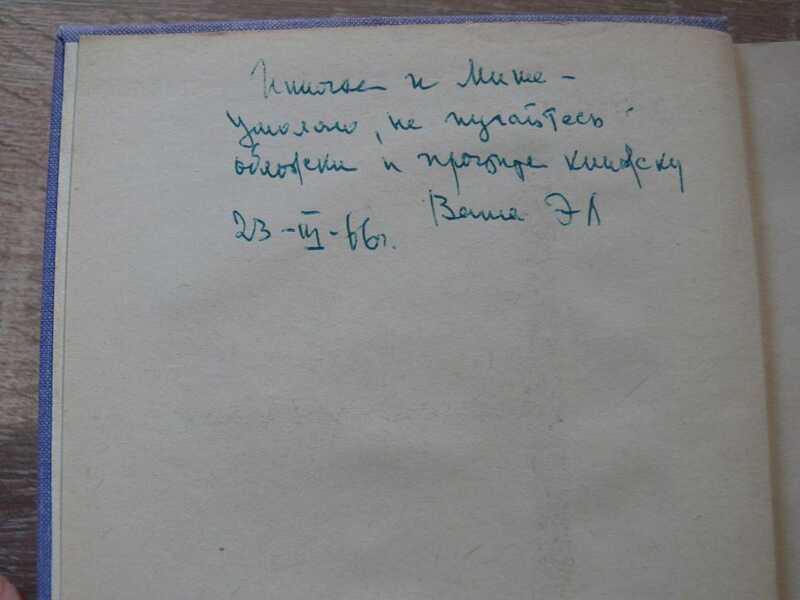 и Мише –
умоляю, не пугайтесь
обложки и прочтите книжку
23-III-66г. Ваша ЭЛ